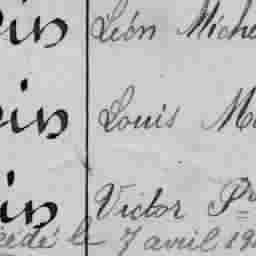 in Léon Miche
in Louis M
in Victor Pr
cédé le 7 avril 19